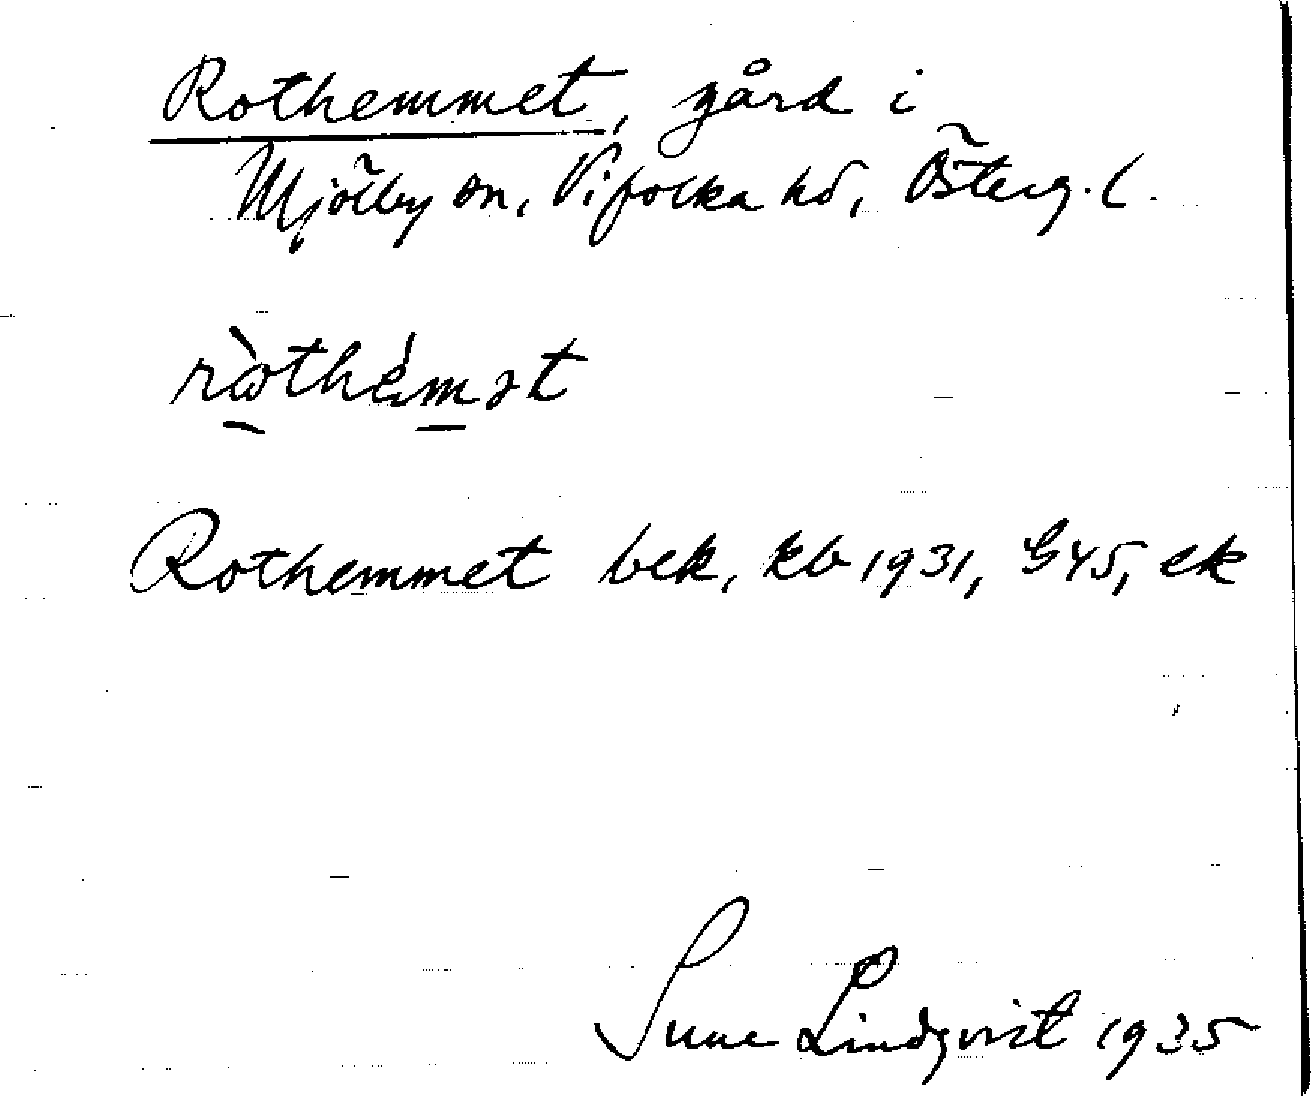 Rothemmet, gård i
Mjölby sn, Vifolka hd, Österg. l.
ròthémət
Rothemmet bek, kb 1931, G45, ek
Sune Lindqvist 1935